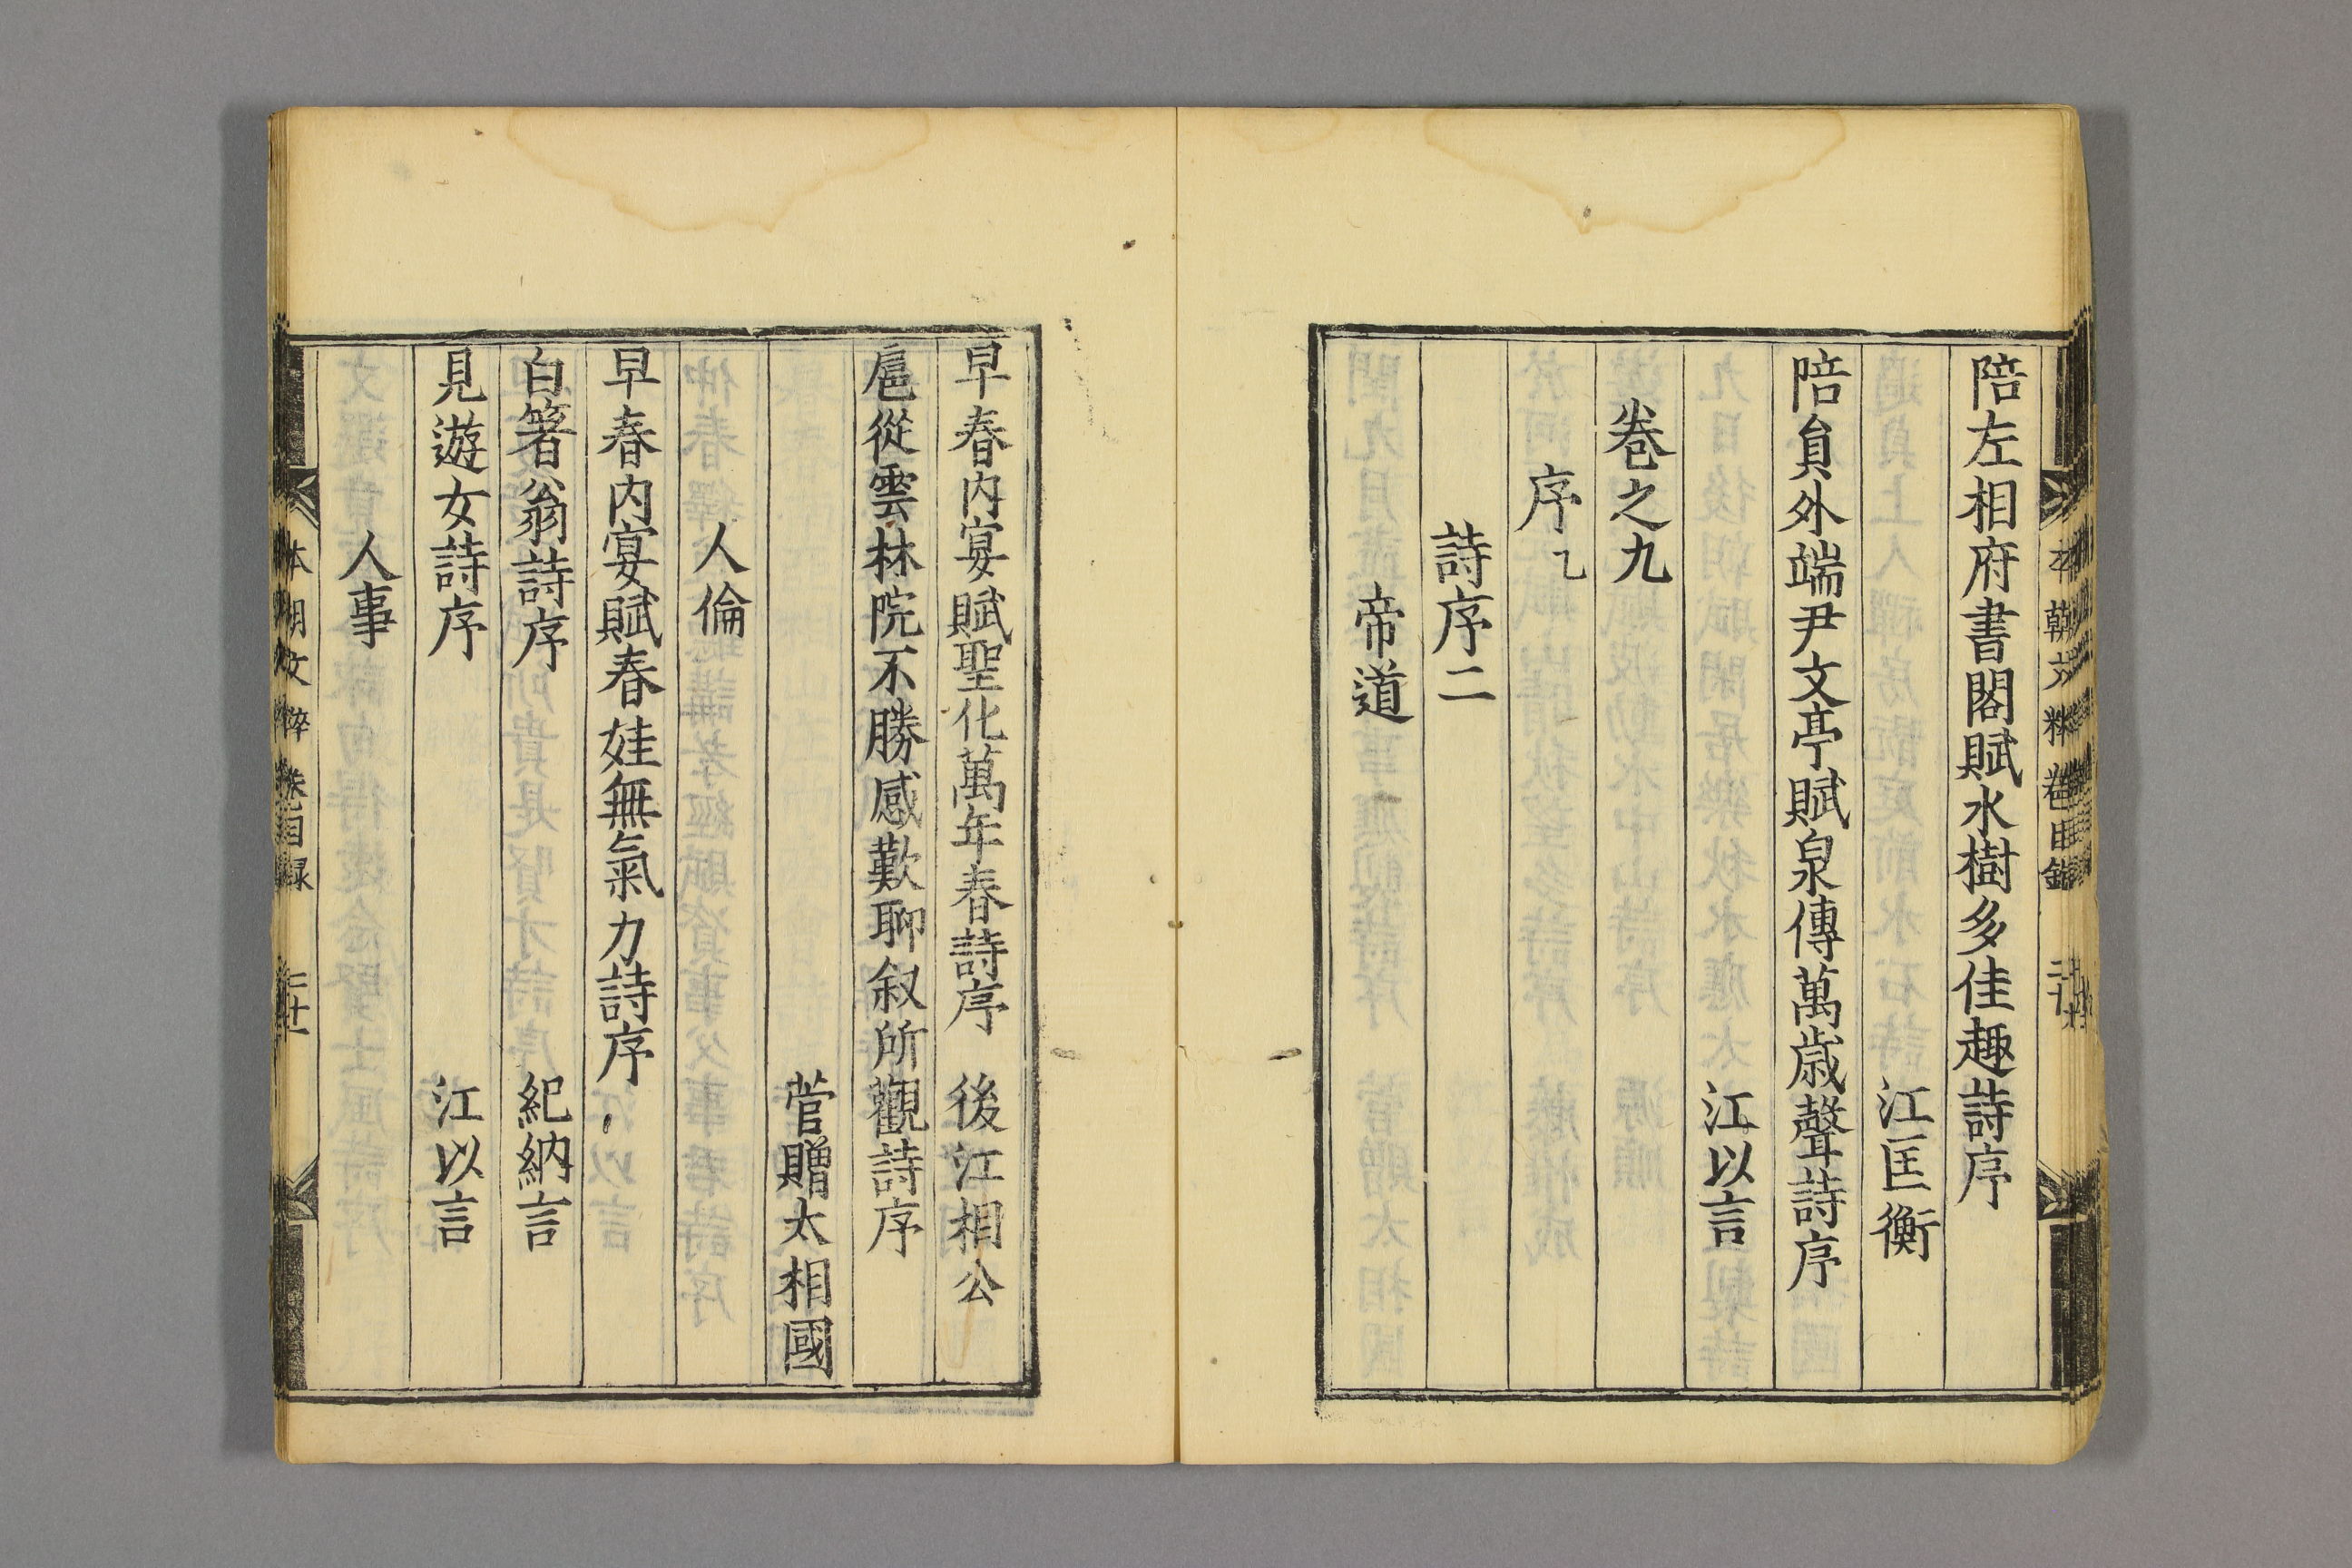 陪左相府書閣賦水樹多佳趣詩序
江匡衡
陪員外端尹文亭賦泉傳萬歳聲詩序
江以言
卷之九
序乙
詩序二
帝道
早春内宴賦聖化萬年春詩序 後江相公
扈從雲林院不勝感歎聊叙所觀詩序
菅贈太相國
人倫
早春内宴賦春娃無氣力詩序
白箸翁詩序 紀納言
見遊女詩序 江以言
人事
本朝文粹 卷目録 二十一